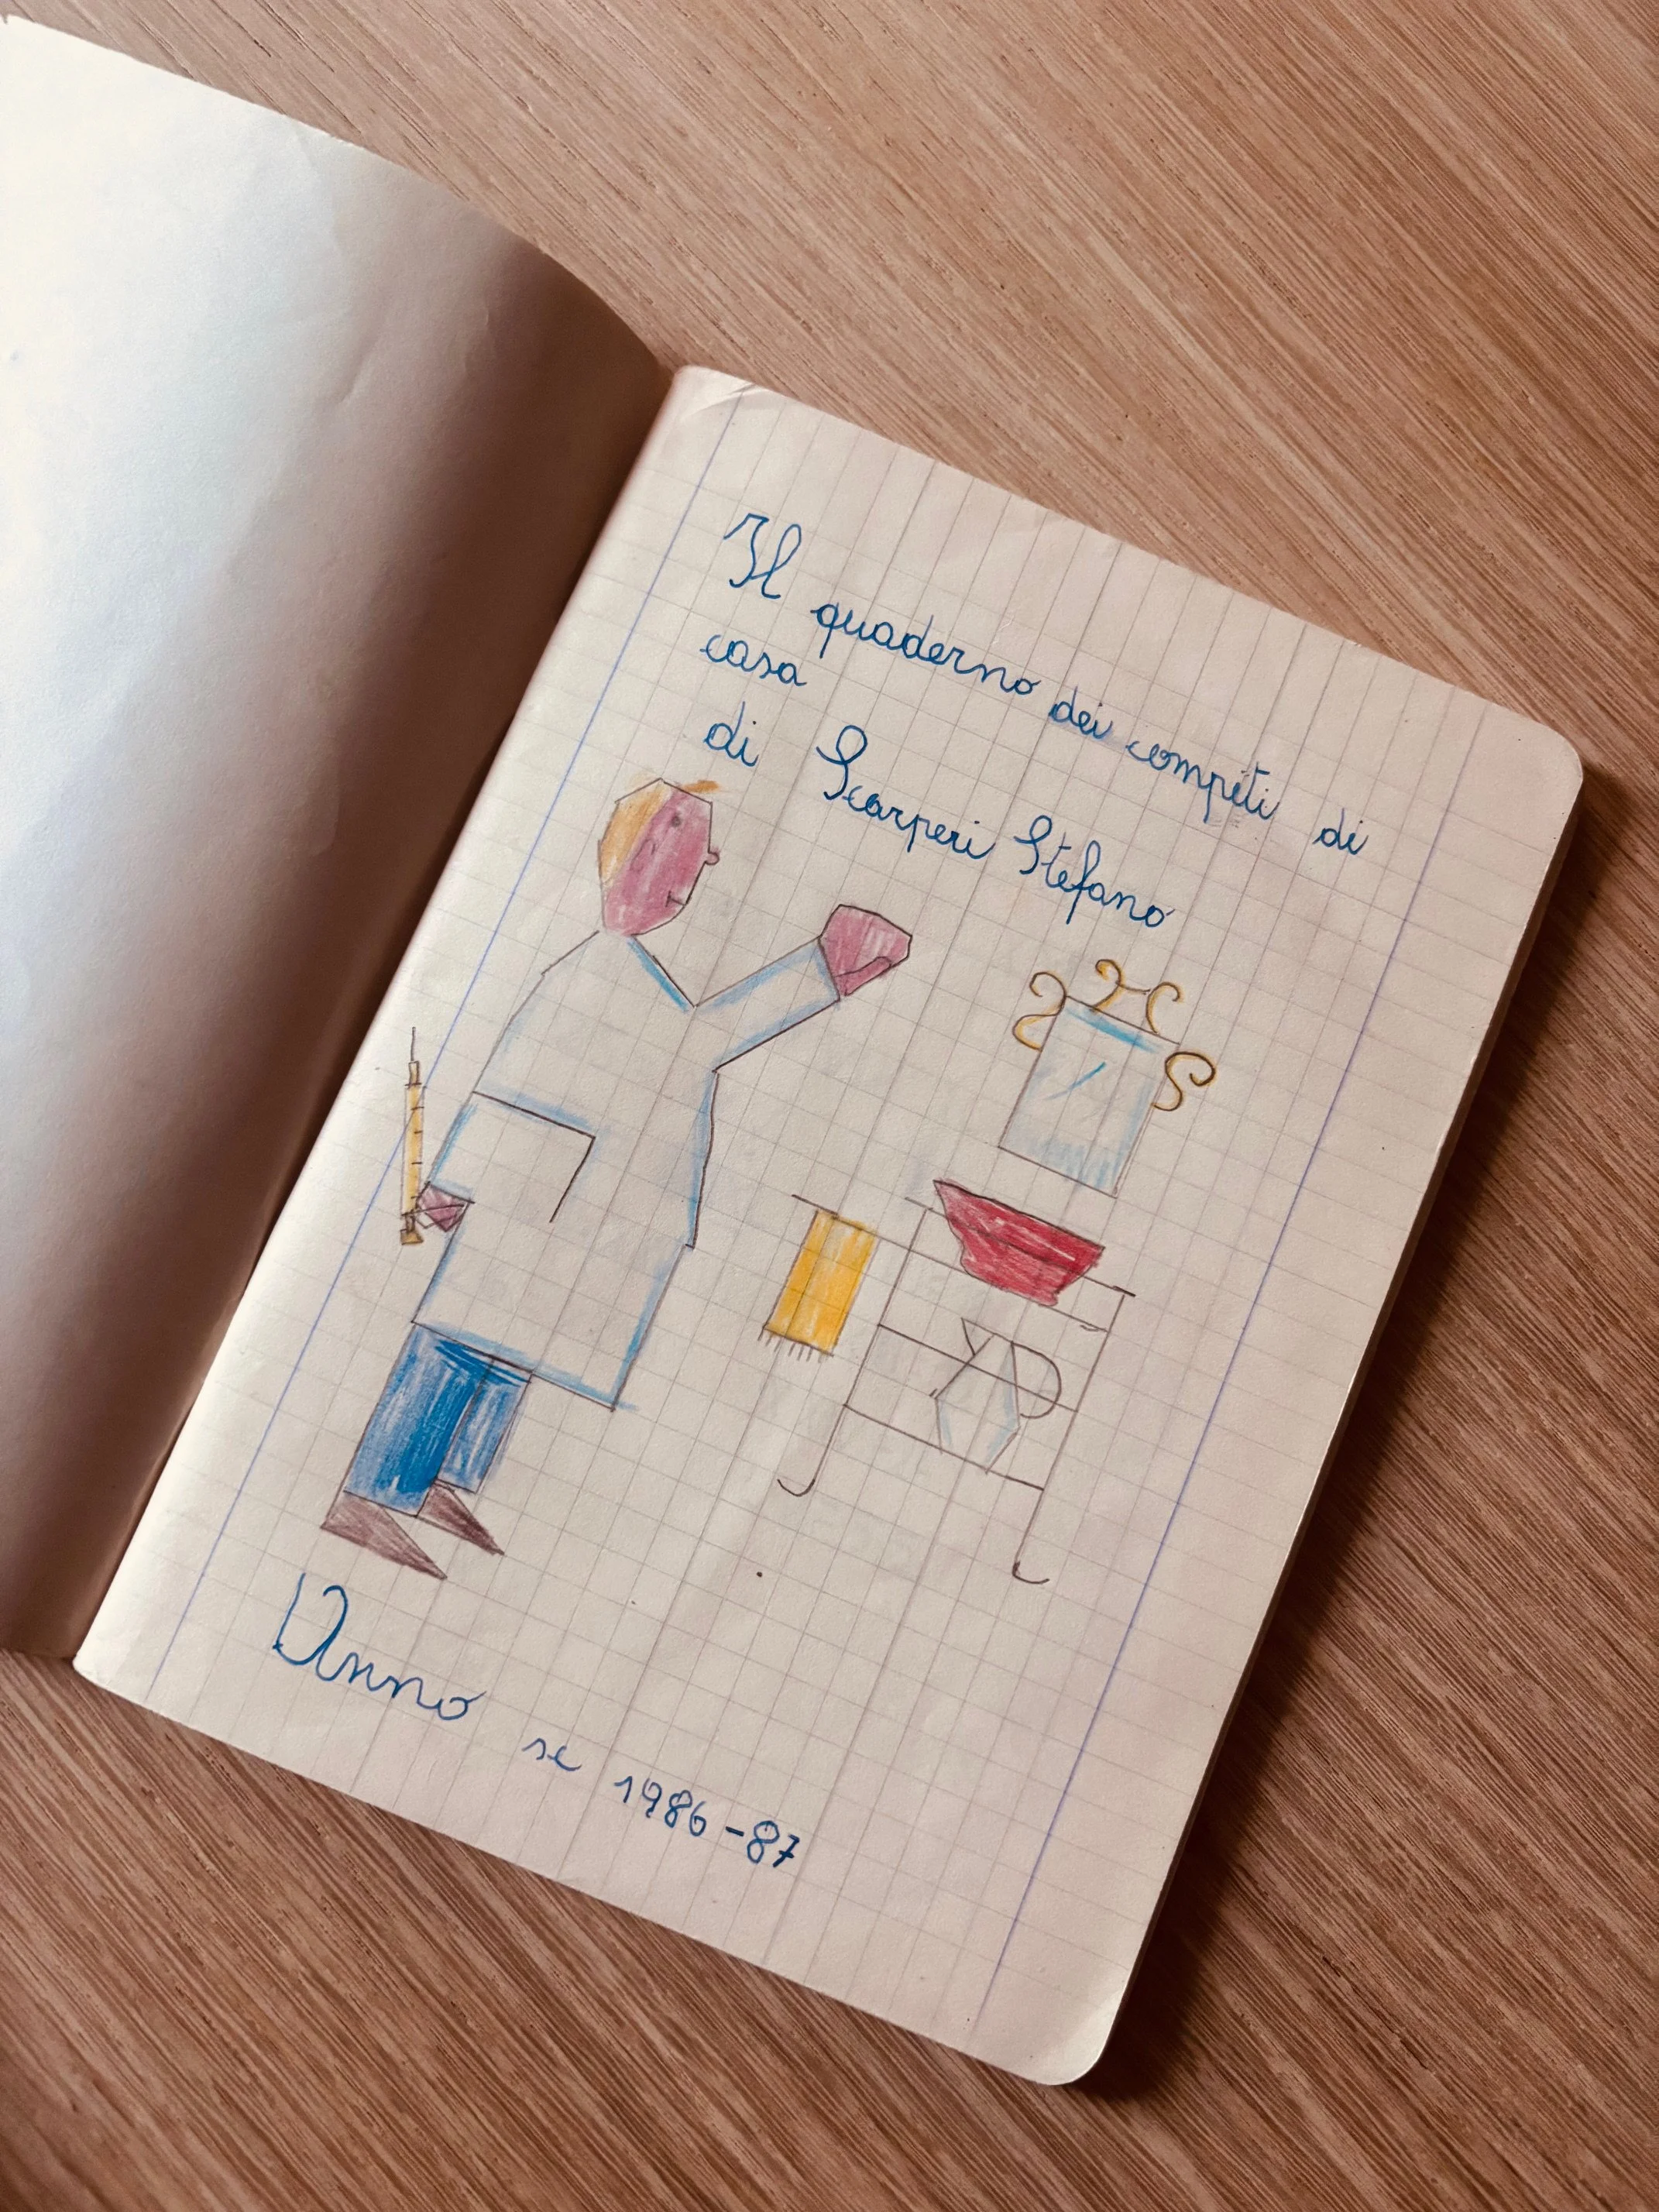 Il quaderno dei compiti di
casa
di Scarperi Stefano
Anno sc 1986-87